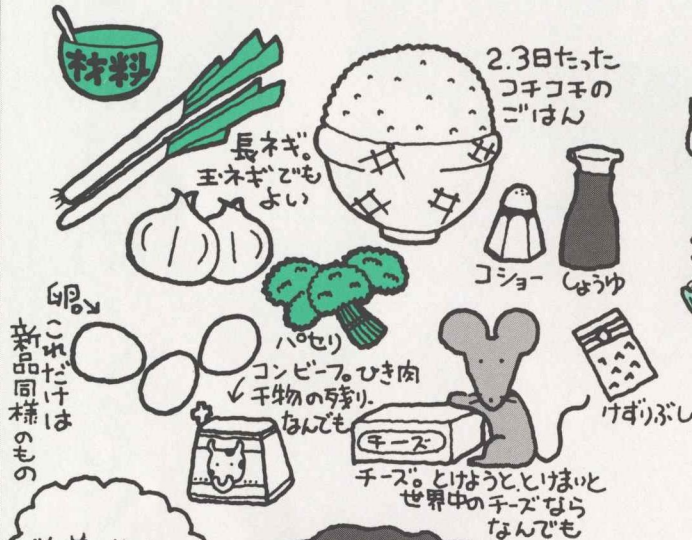 材料
2.3日たった
コチコチの
ごはん
長ネギ。
玉ネギでも
よい
コショー
しょうゆ
パセリ
卵。
これだけは
新品同様のもの
コンビーフ。ひき肉
干物の残り.
なんでも
けずりぶし
チーズ
チーズ。とけようと、とけまいと
世界中のチーズなら
なんでも